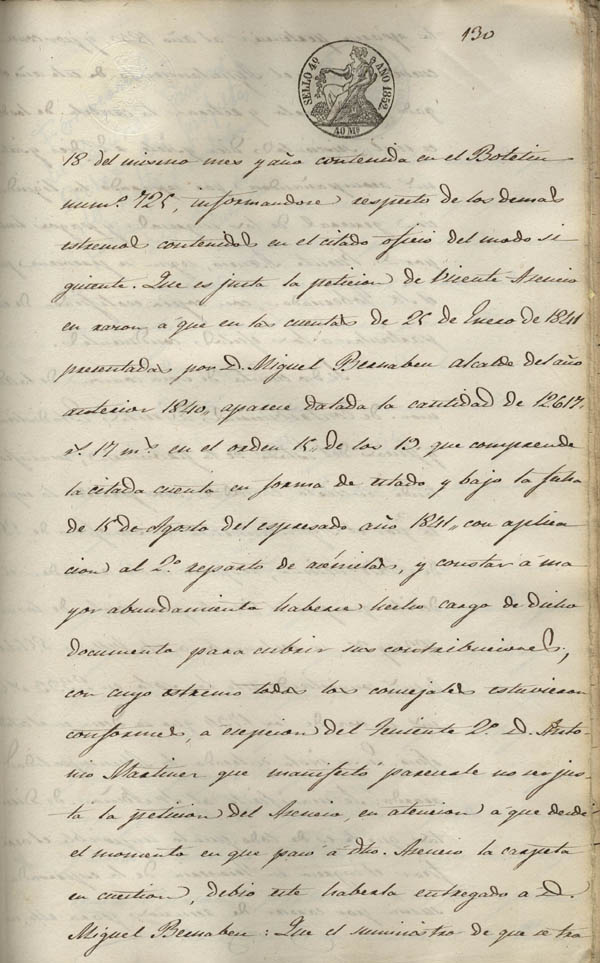 130
SELLO 4º AÑO 1852
40 Ms
18 del mismo mes y año contenida en el Boletin
numº 725, informandose respecto de los demas
estremos contenidos en el citado oficio del modo si
guiente. Que es justa la peticion de Vicente Asencio
en razon á que en las cuentas de 25 de Enero de 1841
presentadas por D. Miguel Bernabeu alcalde del año
anterior 1840, aparece datada la cantidad de 12617,
rs. 17 ms. en el orden 15,, de los 19. que comprende
la citada cuenta en forma de estado y bajo la fecha
de 15 de Agosto del espresado año 1841,, con aplica
cion al 2º reparto de, y constar á ma
yor abundamiento haberse hecho cargo de dicho
documento para cubrir sus contribuciones,
con cuyo estremo todos los concejales estuvieron
conformes, a escepcion del Teniente 2º D. Anto
nio Martinez que manifestó parecerle no ser jus
ta la peticion del Asencio, en atencion á que desde
el momento en que pasó á dho. Asencio la
en cuestion, debio este haberla entregado a D.
Miguel Bernabeu: Que el suministro de que se tra